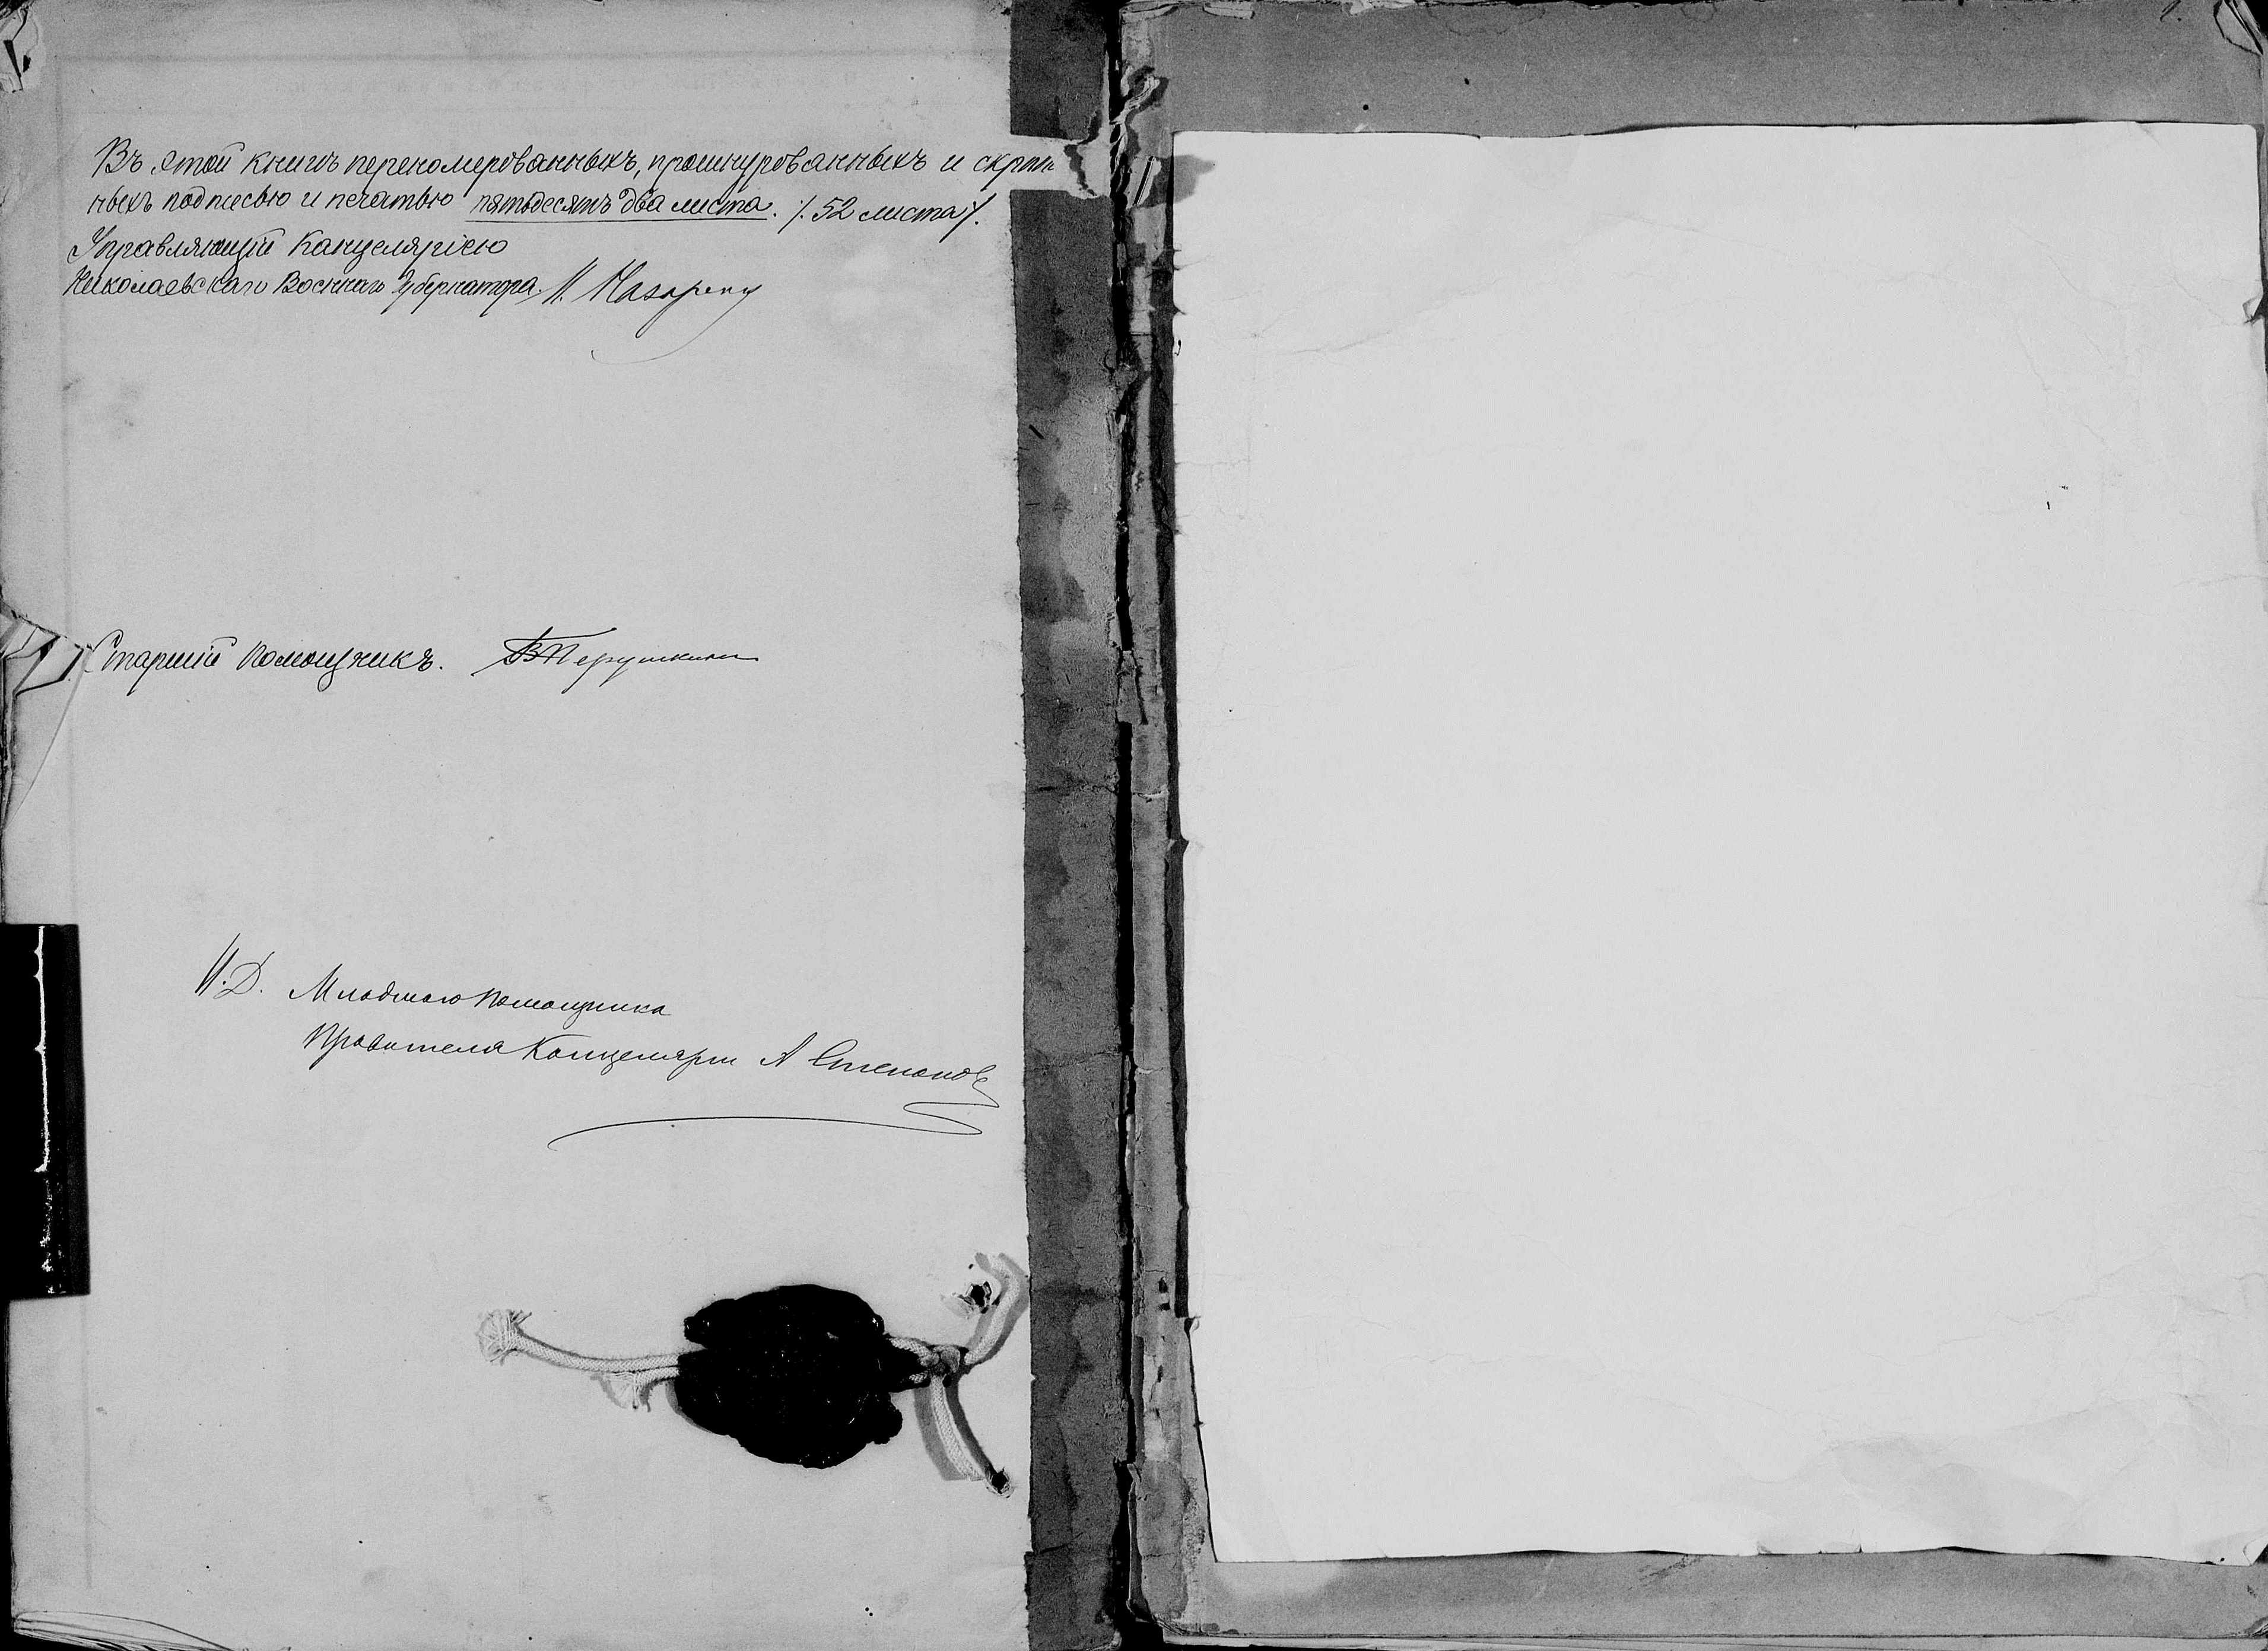 Въ этой книгѣ перенομерованныхъ, прошнурованныхъ и скрѣплен
ныхъ подписью и печатью пятьдесятъ два листа. /. 52 листа /.
Управляющій Канцеляріею
Николаевскаго Военнаго Губернатора.
Старшій помощникъ.
И.Д. Младшаго помощника
Правителя Канцеляріи А Степановъ